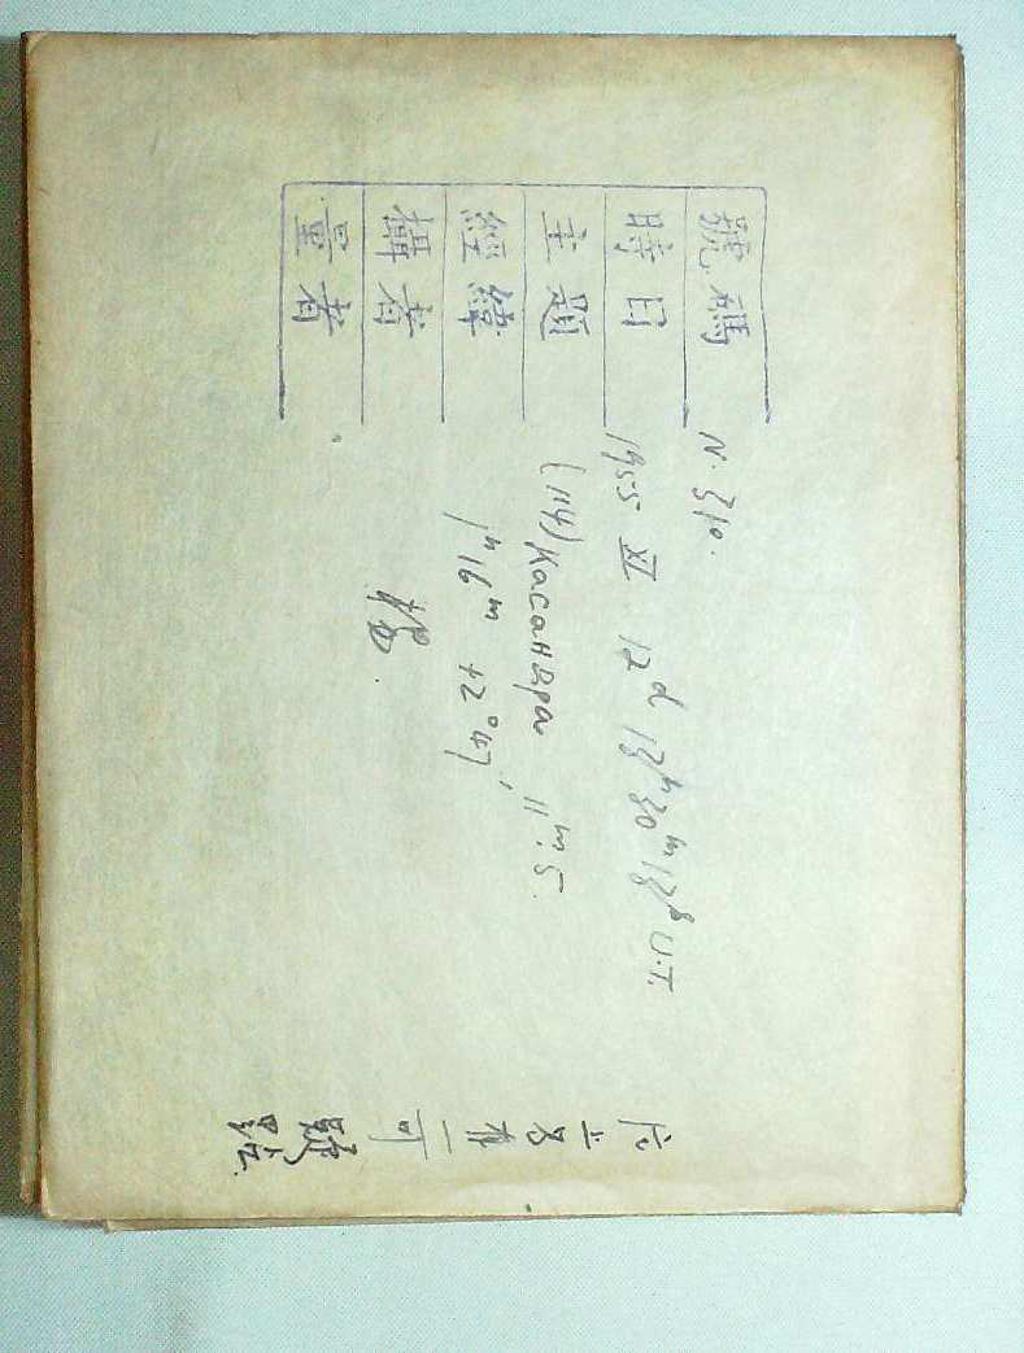 號碼 N. 310.
時日 1955 XI 12ᵈ 13ʰ 30ᵐ 13ˢ U.T.
主題 (114) Касандра 11ᵐ.5.
經緯 1ʰ16ᵐ +2°47'
攝者
量者
片上另有一可疑點.